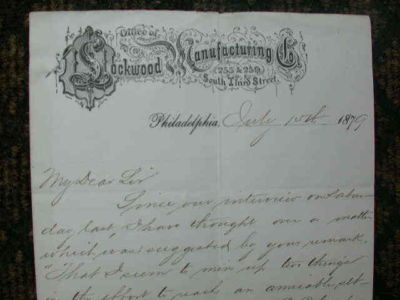 Office of
Lockwood Manufacturing Co.
255 & 259
South Third Street.
Philadelphia, July 10th 1879
My Dear Sir
Since our interview on Satur-
day last, I have thought over a matter
which was suggested by your remark,
"That I seem to mix up two things
in the effort to reach an amicable set-